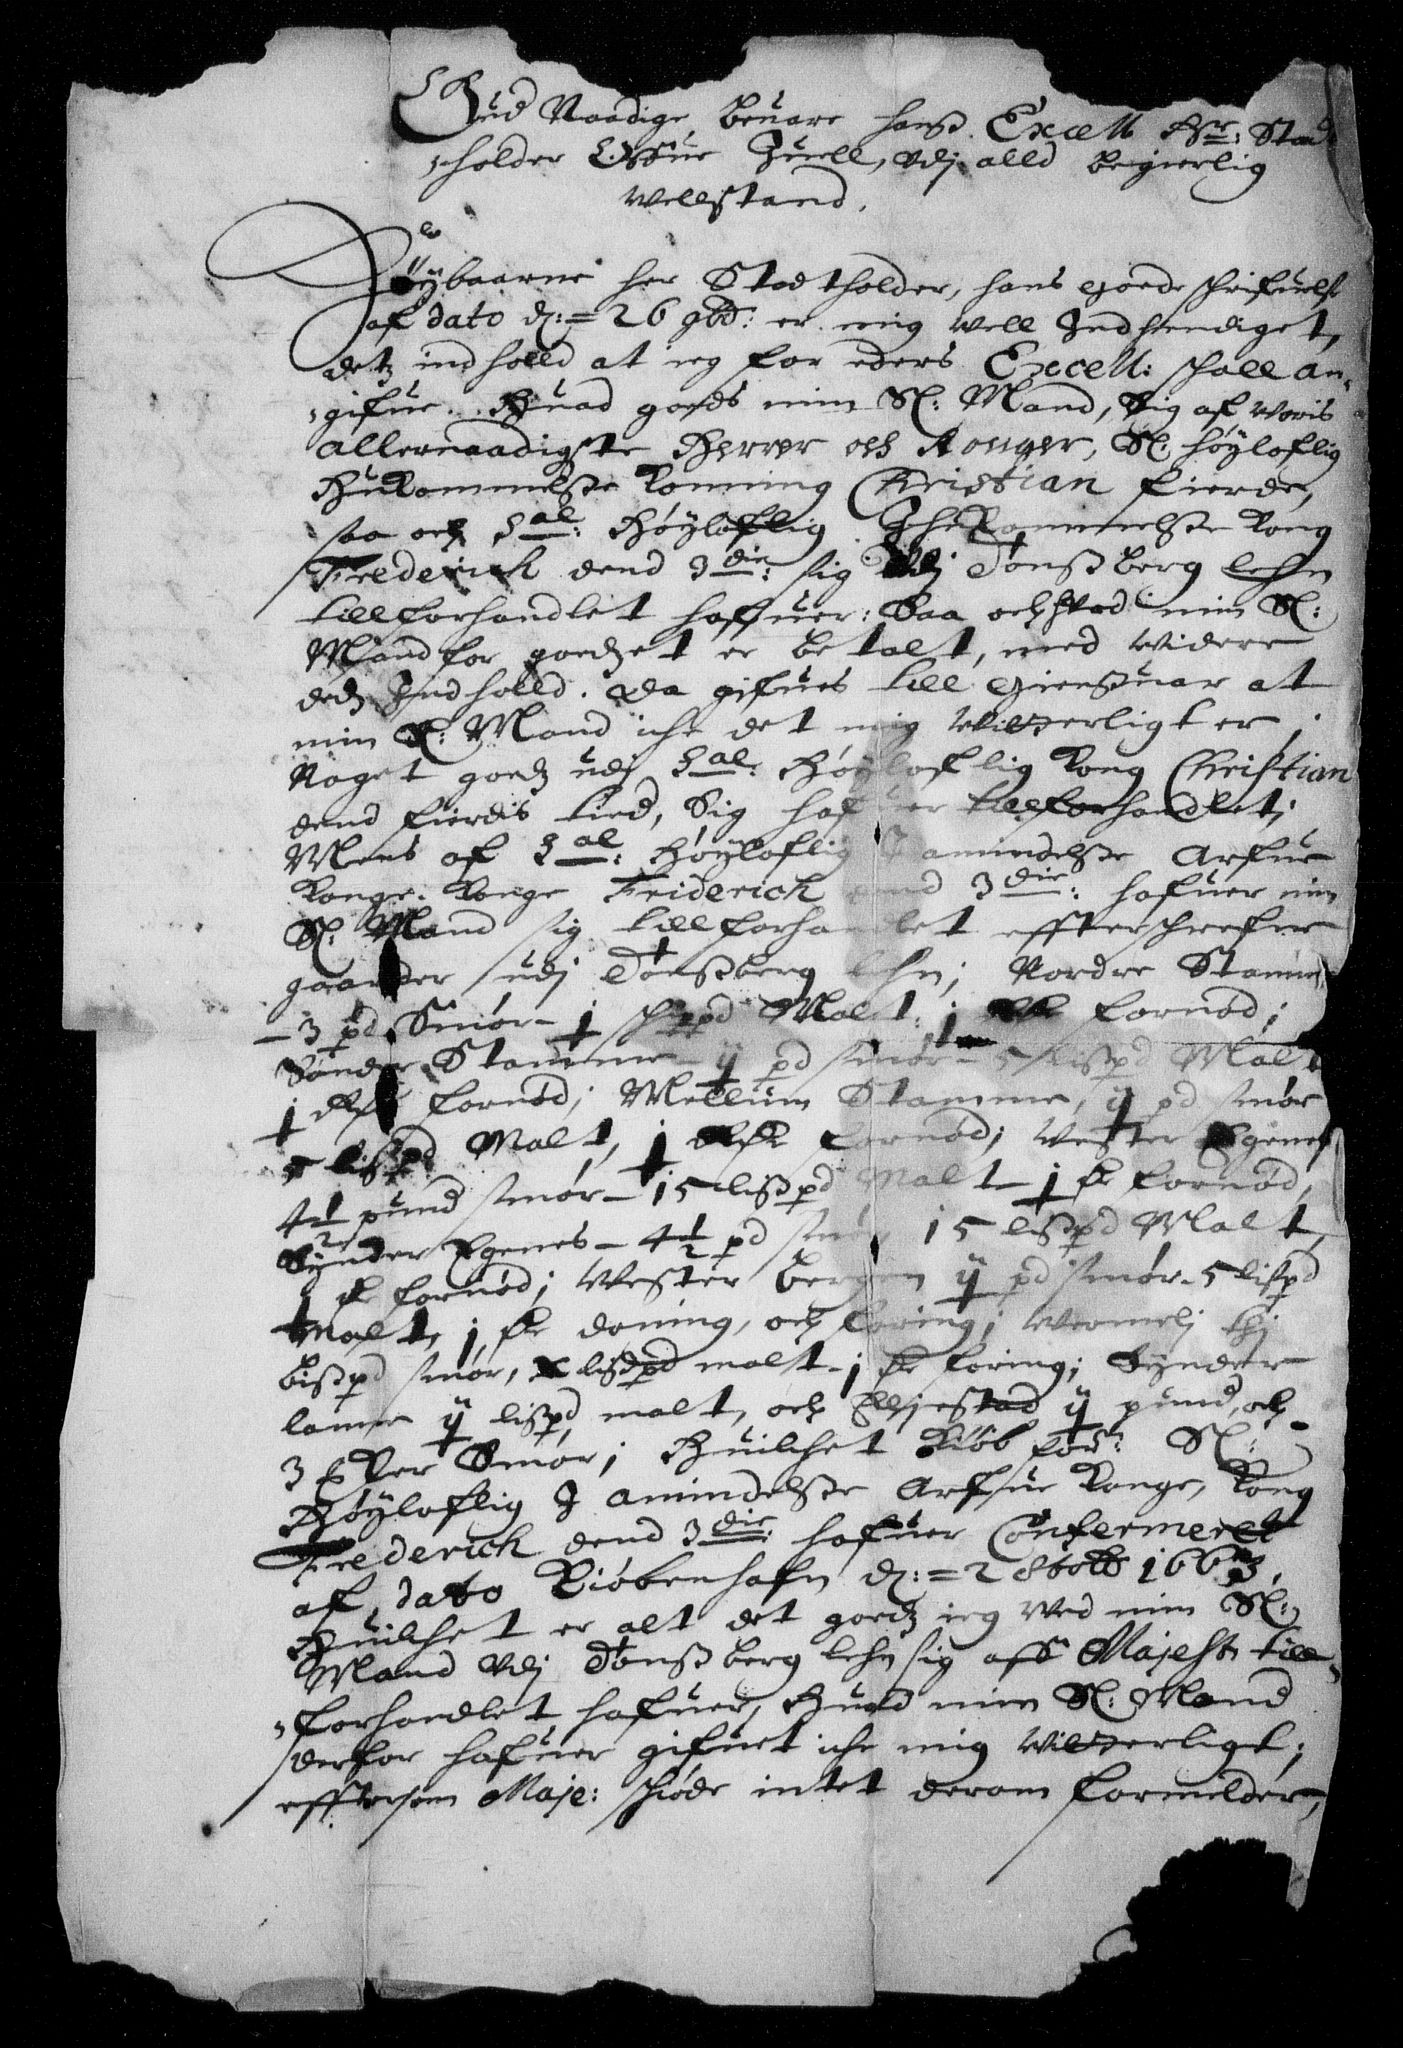 Gud Naadige beuare hanß Excell Hr: Stad
holder Offue Juell, Vdj alld begierlig
vellstand.
Høybaarne her Stadtholder, hans goede schrifuelse
af dato d: 26 9bd: er mig vell Indhendiget,
detz indholld at ieg for eders Excell: schall an¬
gifue. Huad goeds min Sl: Mand, Sig af voris
allernaadigste Herrer och Konger, Sl: høyloflig
Hukommelsse Konning Christian fierde,
saa och Sal: Høyloflig Ihukommelsse Kong
Frederich dend 3die: sig Vdj Tønßberg lehn
tillforhandlet haffuer: Saa och huad min Sl:
Mand for goedzet er betalt, med videre
dedz Indholld. Da gifues till giensuar at
min Sl: Mand iche det mig vitterligt er
Noget goedz udj Sal: Høyloflig Kong Christian
dend fierdis tied, Sig hafuer tillforhandlet;
Mens af Sal: Høyloflig Jamindelsse Arfue
Konge. Konge Friderich dend 3die: hafuer min
Sl: Mand sig tillforhandlet effterschrefne
gaarder udj Tønßberg lehn; Nordre Stamme
- 3 pd Smør - j schippd Malt j fornød;
Sønder Stamme ij pd smør - 5 lißpd Malt
j fornød; Mellum Stamme, ij pd smør
5 lißpd Malt, j fornød; Vester Egenes
4½ pund smør - 15 lißpd Malt - j fornød,
Synder Egenes - 4½ pd smør 15 lißpd Malt,
j fornød; Wester bergen ij pd smør - 5 lißpd
Malt, j doning, och foring;
bißpd smør, lißpd malt - j foring; Synder
lamer ij lißpd malt, och ij pund, och
3 Smør; Huilchet Kiøb Sl:
Høyloflig Jamindelsse Arfue Konge, Kong
Frederich dend 3die: hafuer Confermeret
af dato Kiøbenhafn d: 2 8bols 1663,
Huilchet er alt det goedz ieg ved min Sl:
Mand Vdj Tønßberg lehn sig aff Majest: till¬
forhandlet hafuer, Huad min Sl: Mand
derfor hafuer gifuet iche mig vitterligt;
efftersom Maje: schiøde intet derom formelder,